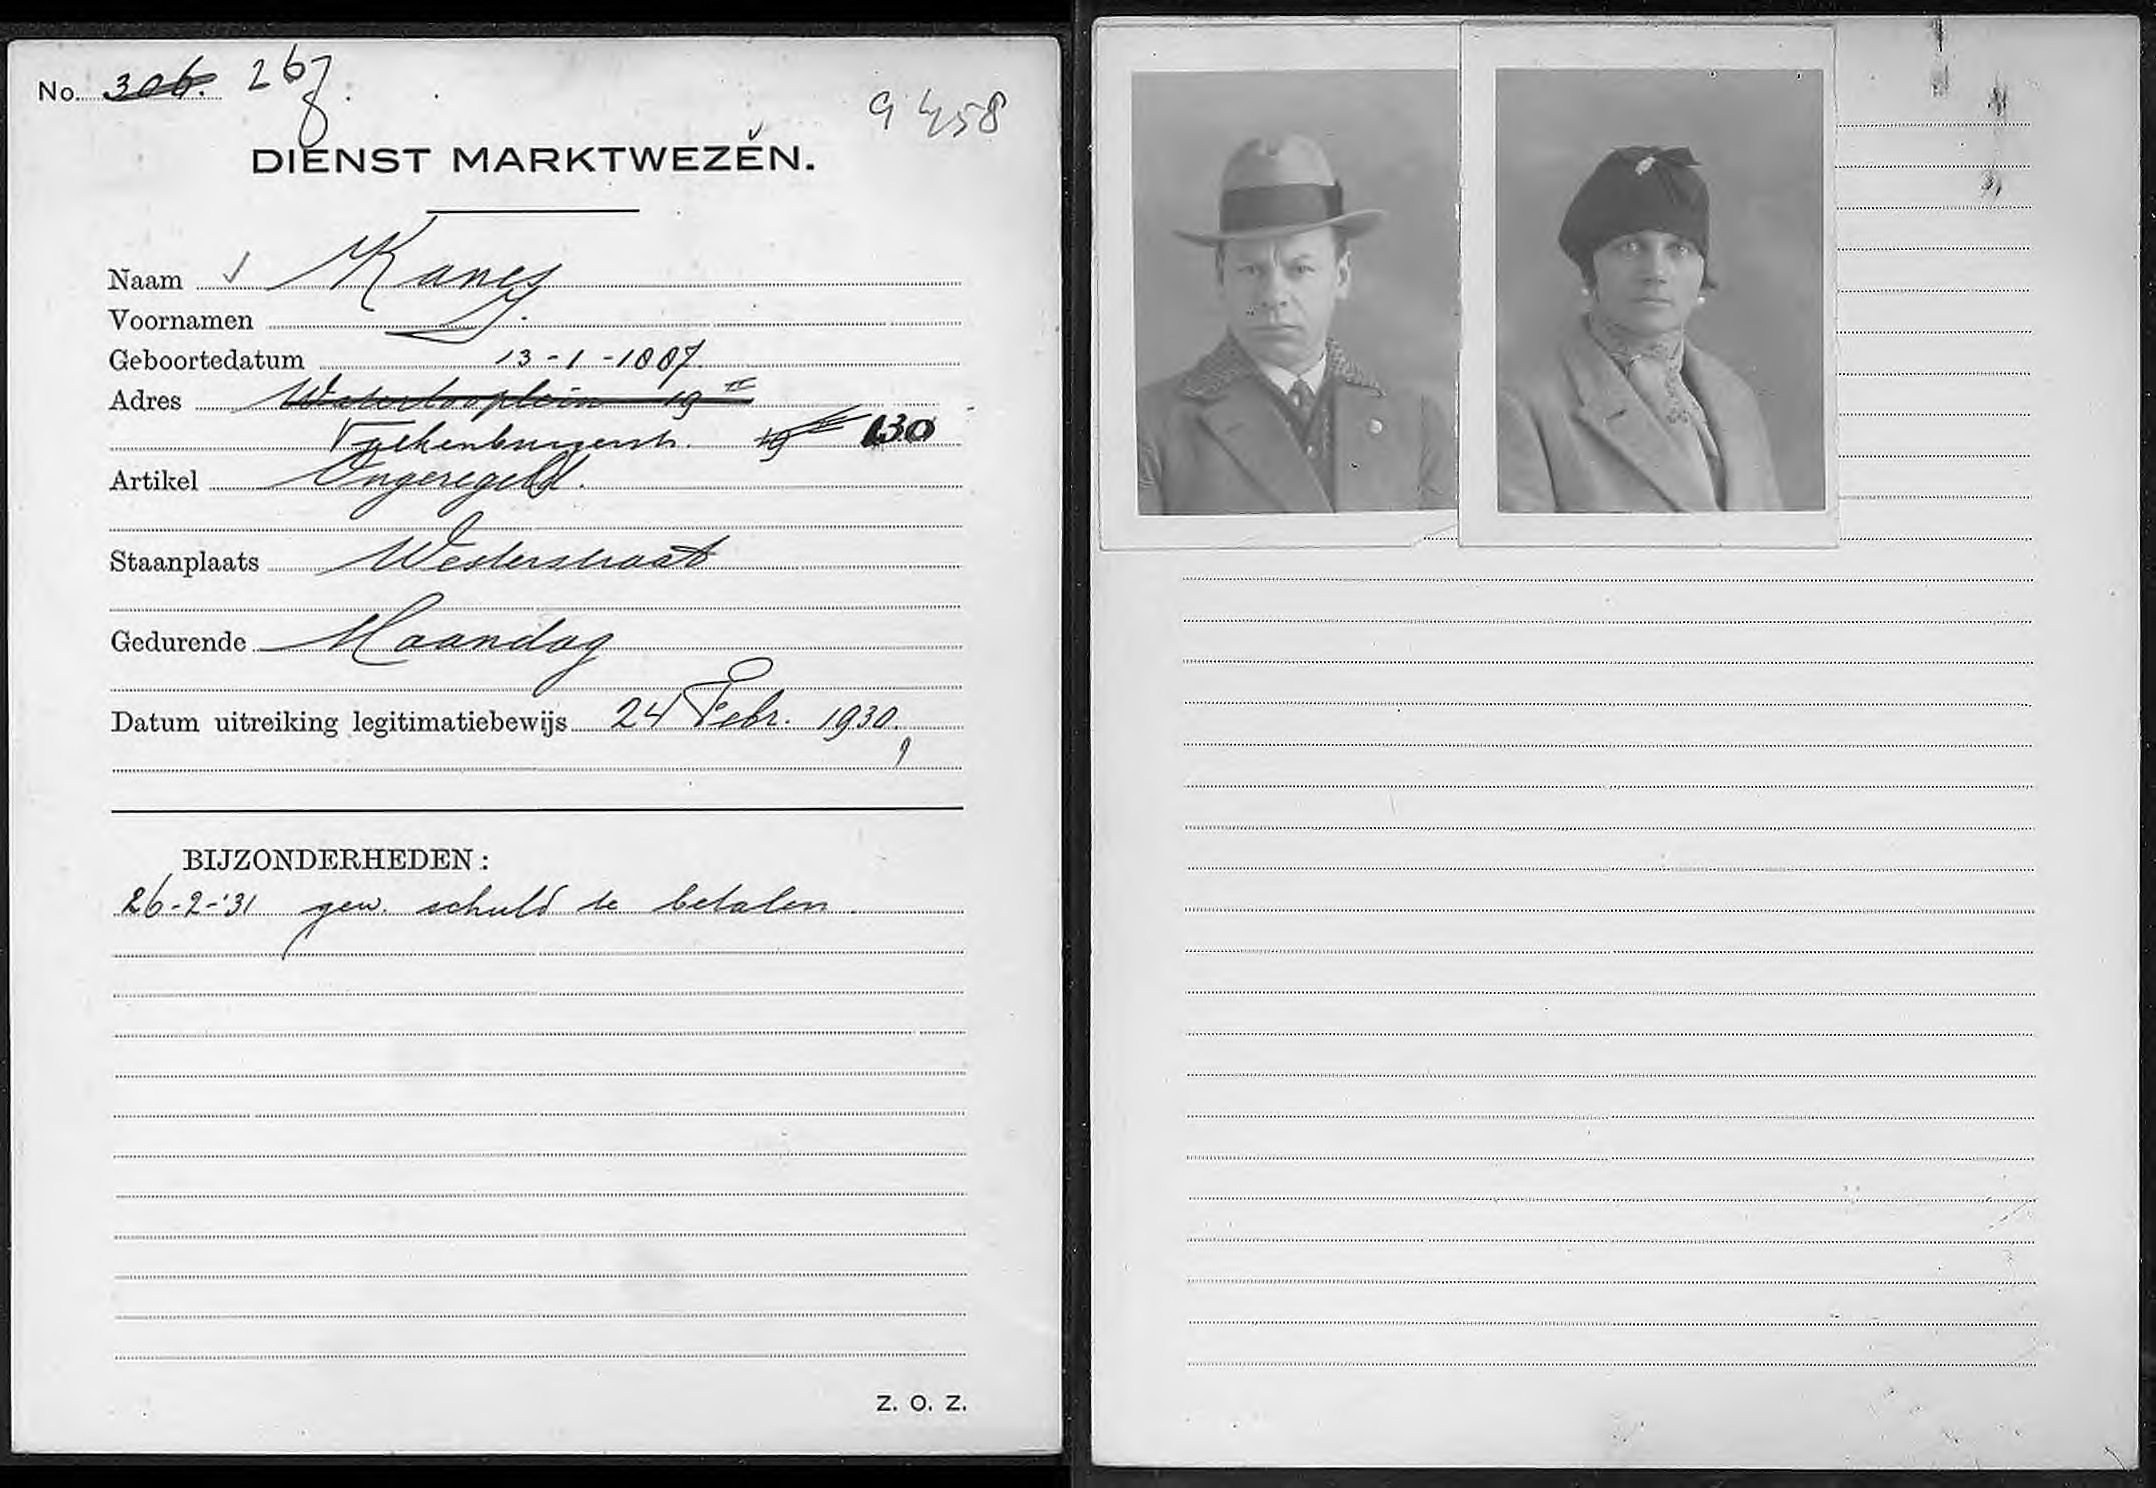 No. 306. 267.
9458
DIENST MARKTWEZEN.
Naam Kanes
Voornamen J.
Geboortedatum 13-1-1887.
Adres Waterlooplein 19 II
Valkenburgerstr. 19 130
Artikel Ongeregeld.
Staanplaats Westerstraat
Gedurende Maandag
Datum uitreiking legitimatiebewijs 24 Febr. 1930.
BIJZONDERHEDEN:
26-2-'31 gew. schuld te betalen.
Z. O. Z.